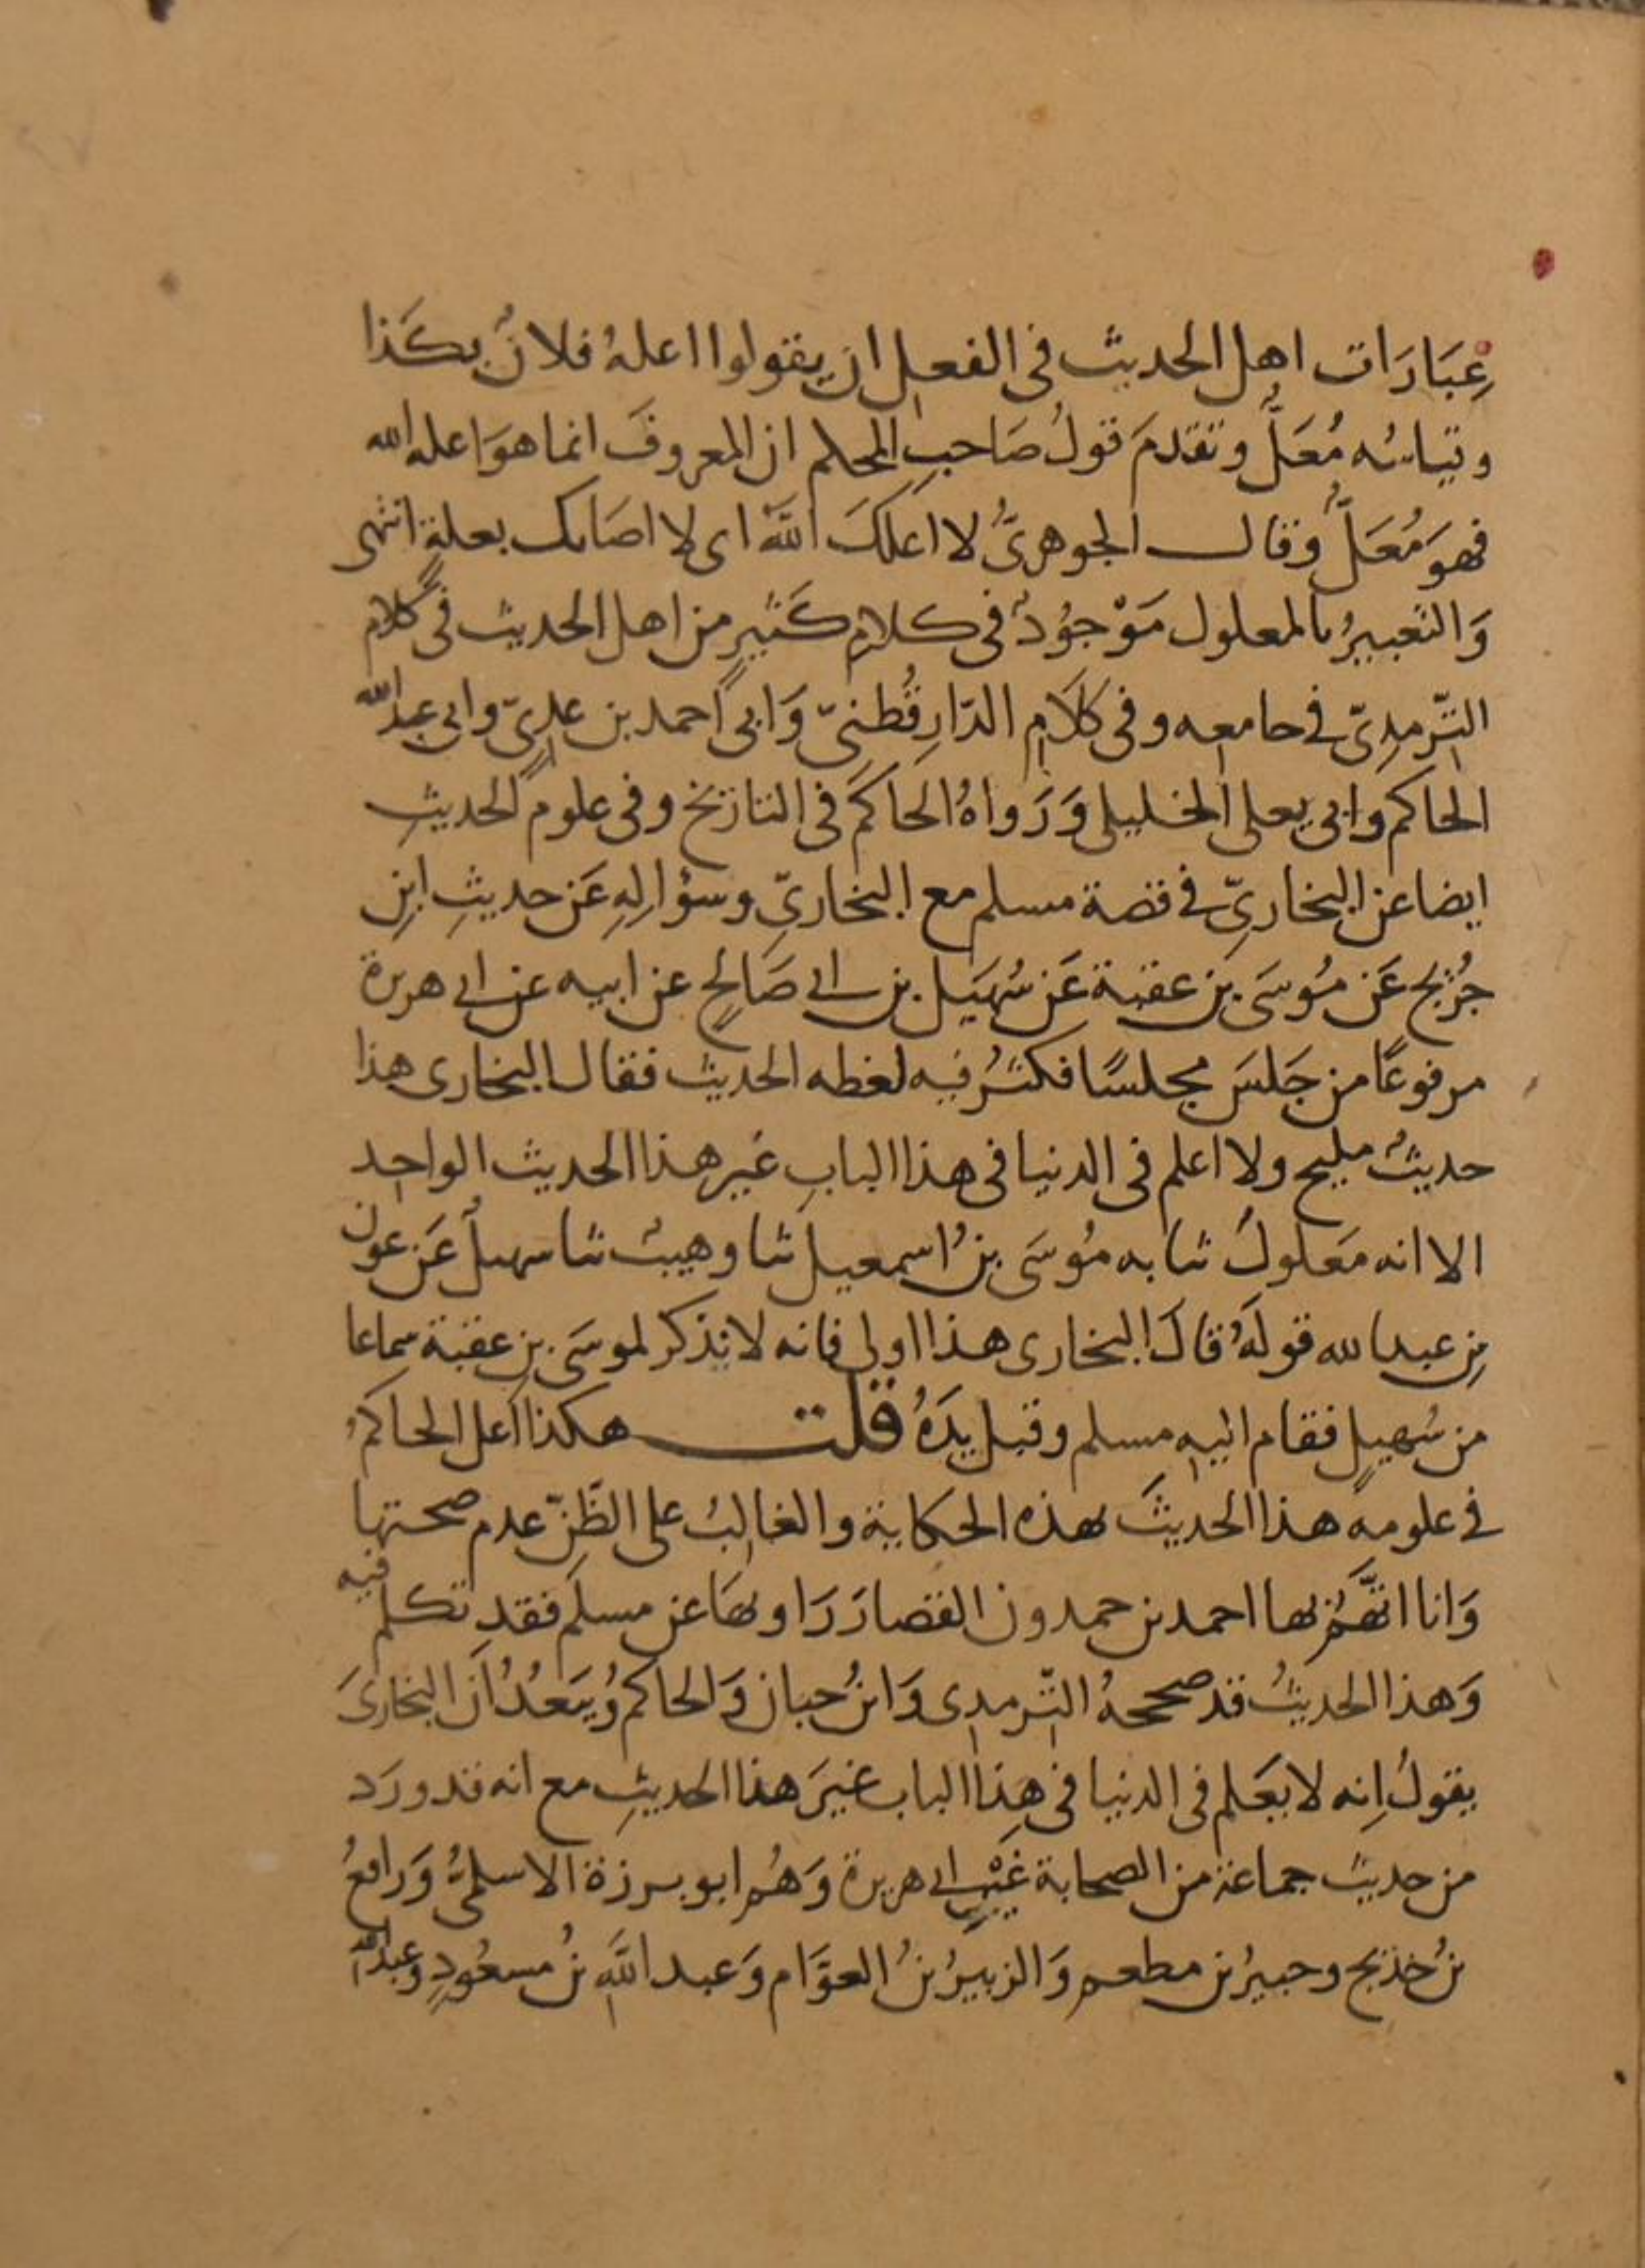 عِبَارَات اهل الحديث في الفعل ان يقولوا اعلهُ فلانٌ بكَذا
وقياسُه مُعَلٌّ وتقدمَ قولُ صَاحبِ المحكم ان المعروفَ انما هوَ اعله الله
فهوَ مُعَلٌّ وقال الجوهريُّ لا اعلكَ اللَّهُ اى لا اصَابك بعلةٍ انتهى
وَالتعبيرُ بالمعلول مَوْجوُدٌ فى كلامِ كَثيرٍ من اهل الحديث في كلام
التّرمِدىّ في جامعه وفى كلَامِ الدّارِقُطنىّ وَابى احمد بن عدِىّ وابى عبدالله
الحاكم وابى يعلى الخليلى وَرَواهُ الحاكمُ فى التاريخ وفى علوم الحديثِ
ايضا عن البخارىِّ في قصة مسلم مع البخارىِّ وسؤالِهِ عَن حديثِ ابنِ
جُريج عَن مُوسَى بنِ عقبة عَن سُهَيَل بن ابى صَالحٍ عن ابيه عن ابى هريرة
مرفوعًا من جَلسَ مجلسًا فكثرُ فيه لغطه الحديث فقال البخارى هذا
حديثٌ مليح ولا اعلم فى الدنيا فى هذا البابِ غير هذا الحديث الواحِد
الا انه مَعلولٌ ثنا به مُوسَى بنُ اسمعيل ثنا وهيبٌ ثنا سهيلٌ عَن عون
بنِ عبدالله قولَهُ قالَ البخارى هذا اولى فانه لا يذكر لموسَى بنِ عقبة سماعا
من سُهيلٍ فقام اليه مسلم وقبل يدَهُ قلت هكذا اعل الحاكمُ
في علومه هذا الحديثَ بهذه الحكاية والغالبُ على الظَّنِّ عدم صحتها
وَانا اتَّهِمُ بها احمد بن حمدون القصار رَاويهَا عن مسلم فقد تكلم فيه
وَهذا الحديثُ قد صححهُ التّرمدى وَابنُ حبان وَالحاكمُ وُيبَعُدُ اَنَ البخارىَ
يقولُ اِنه لا يَعلم فى الدنيا في هِذا الباب غيرَ هذا الحديثِ مع انه قد ورَد
من حديث جماعة من الصحابة غَيْرِ ابى هريرة وَهُم ابو برزة الاسلمىُّ وَرافعُ
بنُ خديج وجبيرُ بن مطعم وَالزبيرُ بنُ العوَّام وَعبد اللَّهِ بنُ مسعُودٍ وعبدالله